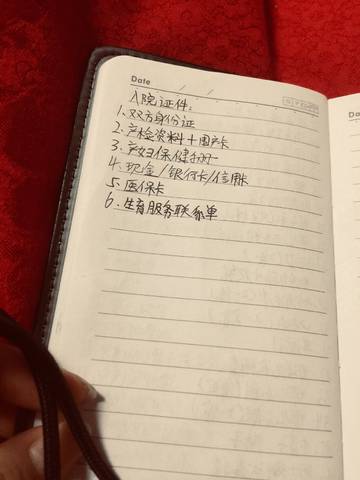 Date
入院证件：
1.双方身份证
2.产检资料+围产卡
3.产妇保健手册
4.现金/银行卡/信用卡
5.医保卡
6.生育服务联系单